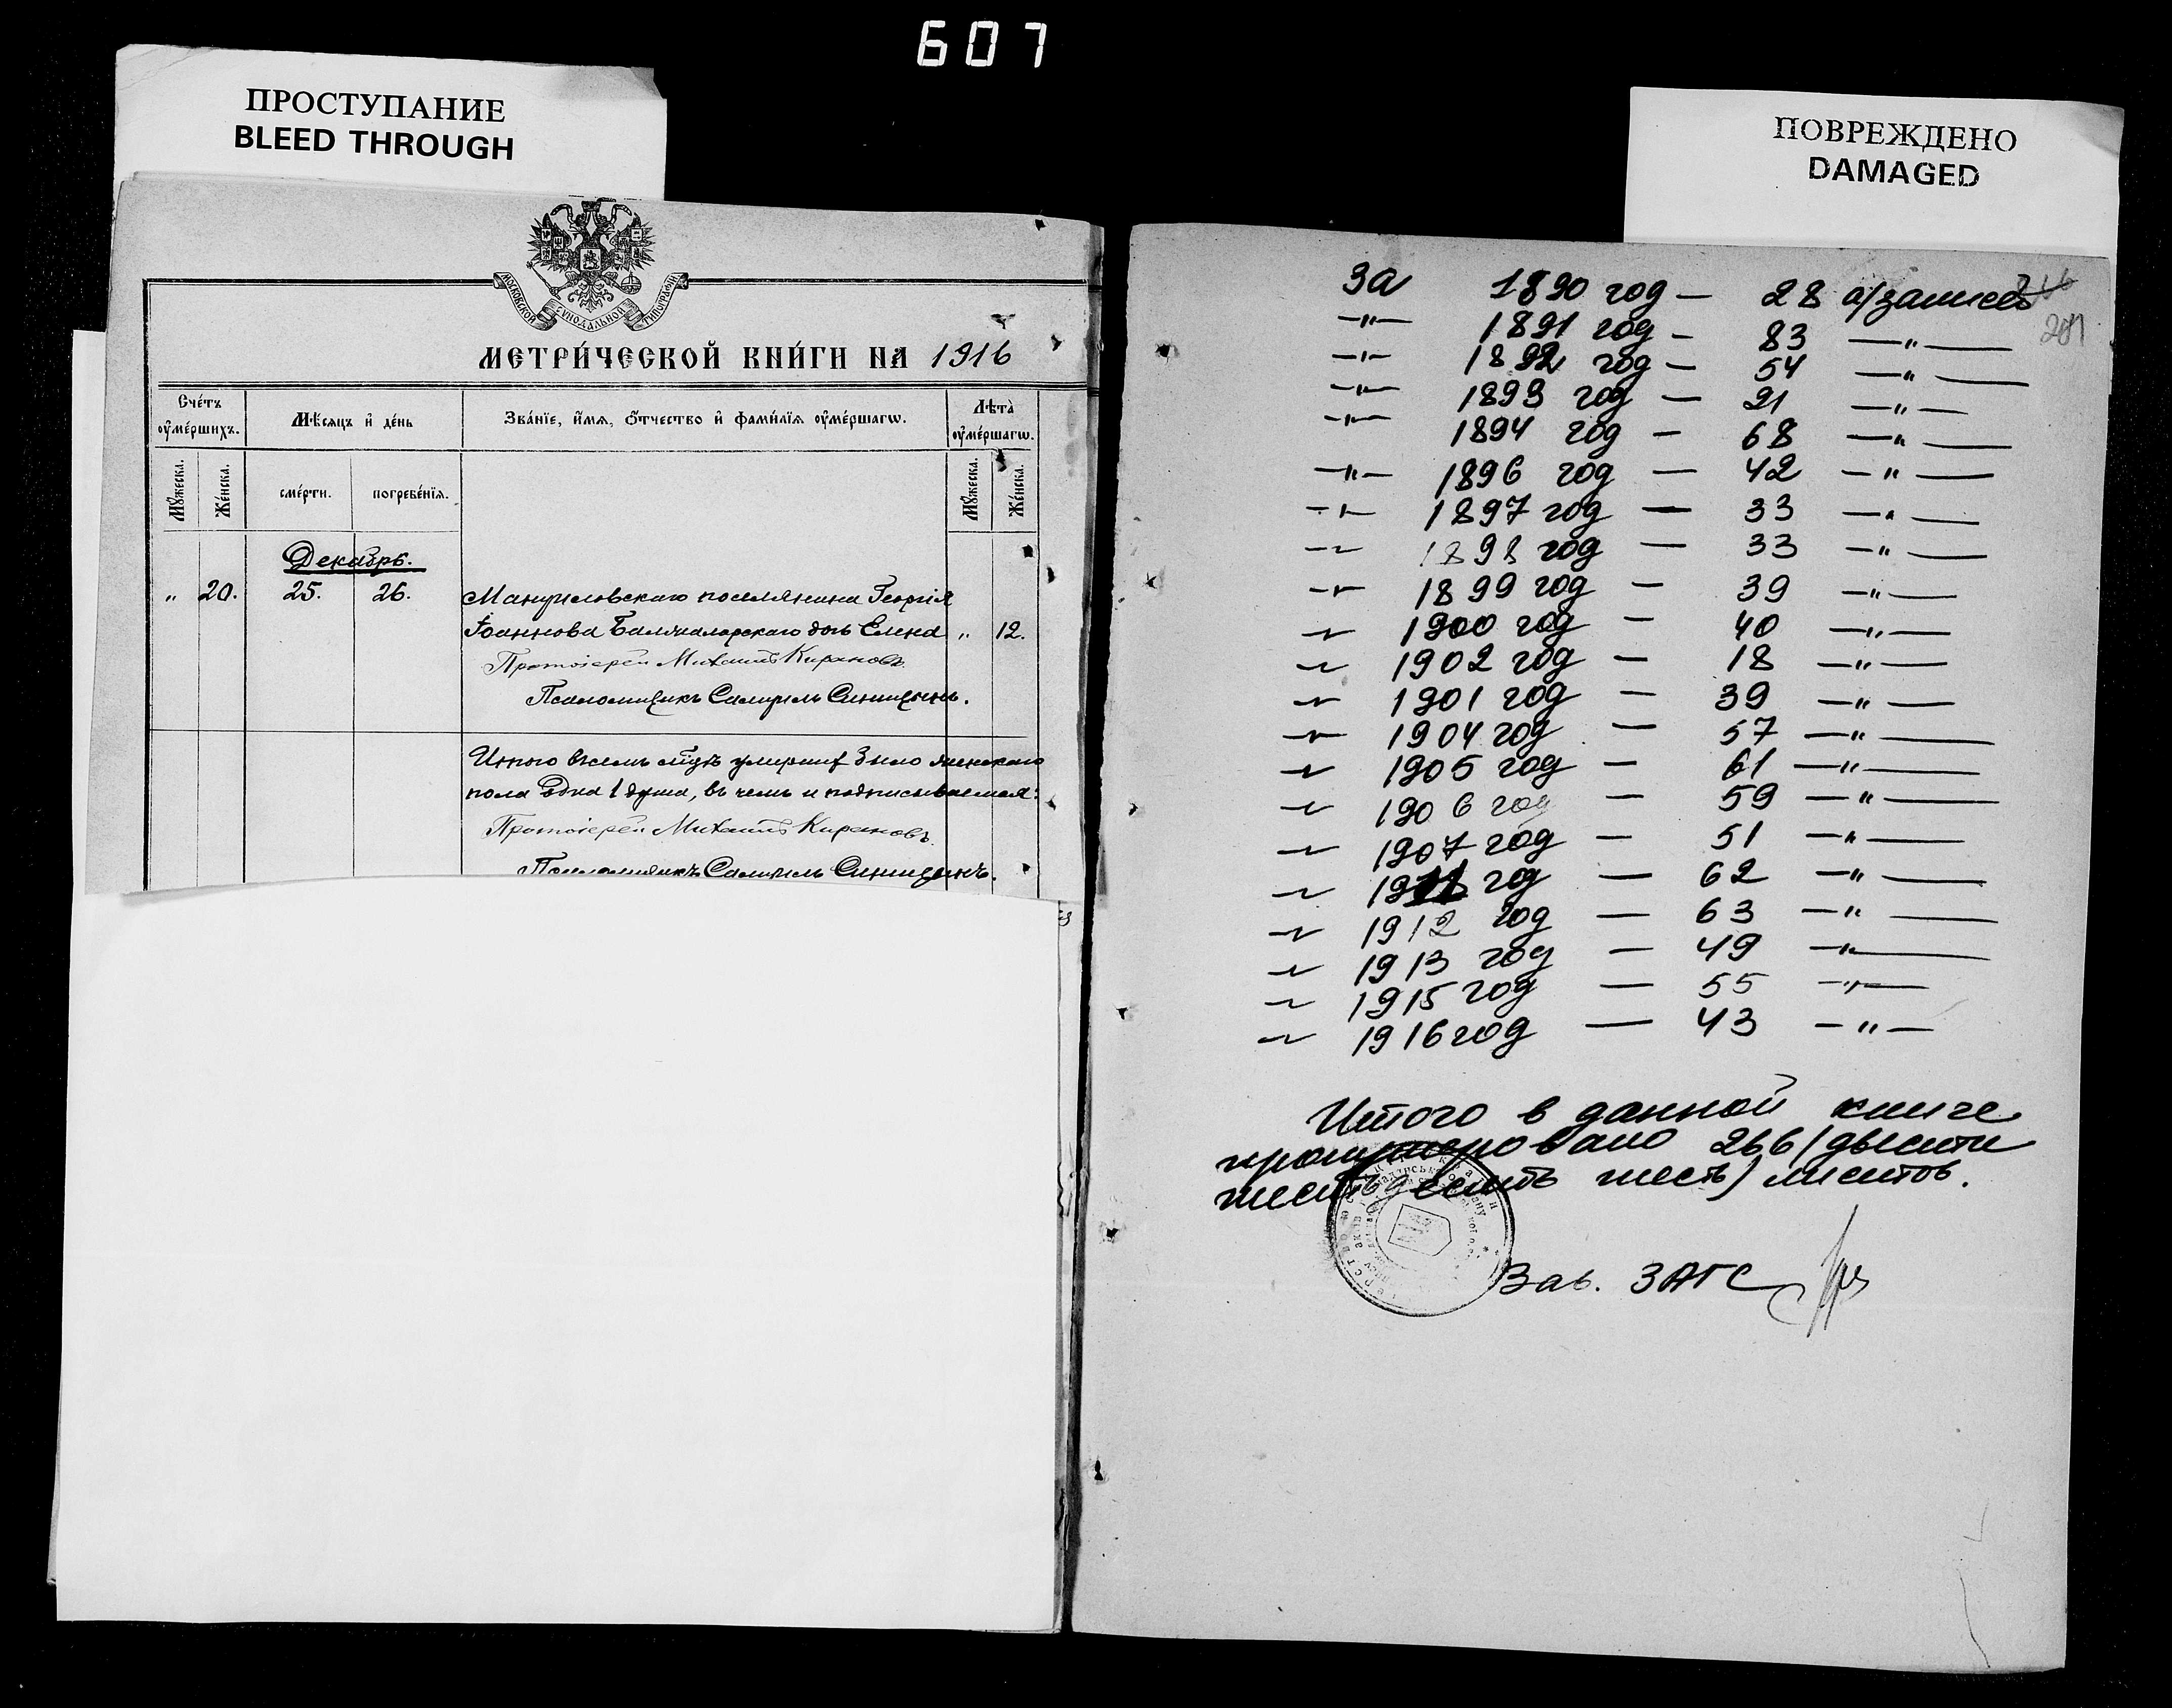 607
ПРОСТУПАНИЕ
BLEED THROUGH
ПОВРЕЖДЕНО
DAMAGED
МОСКОВСКОЙ СѴНОДАЛЬНОЙ ТИПОГРАФІИ
МЕТРИ́ЧЕСКОЙ КНИ́ГИ НА 1916
Сче́тъ оу҆ме́ршихъ.
Мѣ́сяцъ и҆ де́нь
Зва́нїе, и҆́мя, ѻ҆́тчество и҆ фами́лїя оу҆ме́ршагѡ.
Лѣта̀ оу҆ме́ршагѡ.
Мꙋ́жеска.
Же́нска.
сме́рти.
погребе́нїя.
Мꙋ́жеска.
Же́нска.
Декабрь.
" 20. 25. 26. Мануиловскаго поселянина Георгія
Іоаннова дочь Елена " 12.
Протоіерей Михаилъ Кирановъ
Псаломщикъ Самуилъ Синицынъ.
Итого всего умершихъ было женскаго
пола одна 1 душа, въ чемъ и подписываемся:
Протоіерей Михаилъ Кирановъ
Псаломщикъ Самуилъ Синицынъ.
За 1890 год — 28 а/записей
—"— 1891 год — 83 —"—
—"— 1892 год — 54 —"—
—"— 1893 год — 21 —"—
—"— 1894 год — 68 —"—
—"— 1896 год — 42 —"—
—"— 1897 год — 33 —"—
—"— 1898 год — 33 —"—
—"— 1899 год — 39 —"—
—"— 1900 год — 40 —"—
—"— 1902 год — 18 —"—
—"— 1901 год — 39 —"—
—"— 1904 год — 57 —"—
—"— 1905 год — 61 —"—
—"— 1906 год — 59 —"—
—"— 1907 год — 51 —"—
—"— 1911 год — 62 —"—
—"— 1912 год — 63 —"—
—"— 1913 год — 49 —"—
—"— 1915 год — 55 —"—
—"— 1916 год — 43 —"—
Итого в данной книге
пронумеровано 266 (двести
шестьдесят шесть) листов.
Зав. ЗАГС